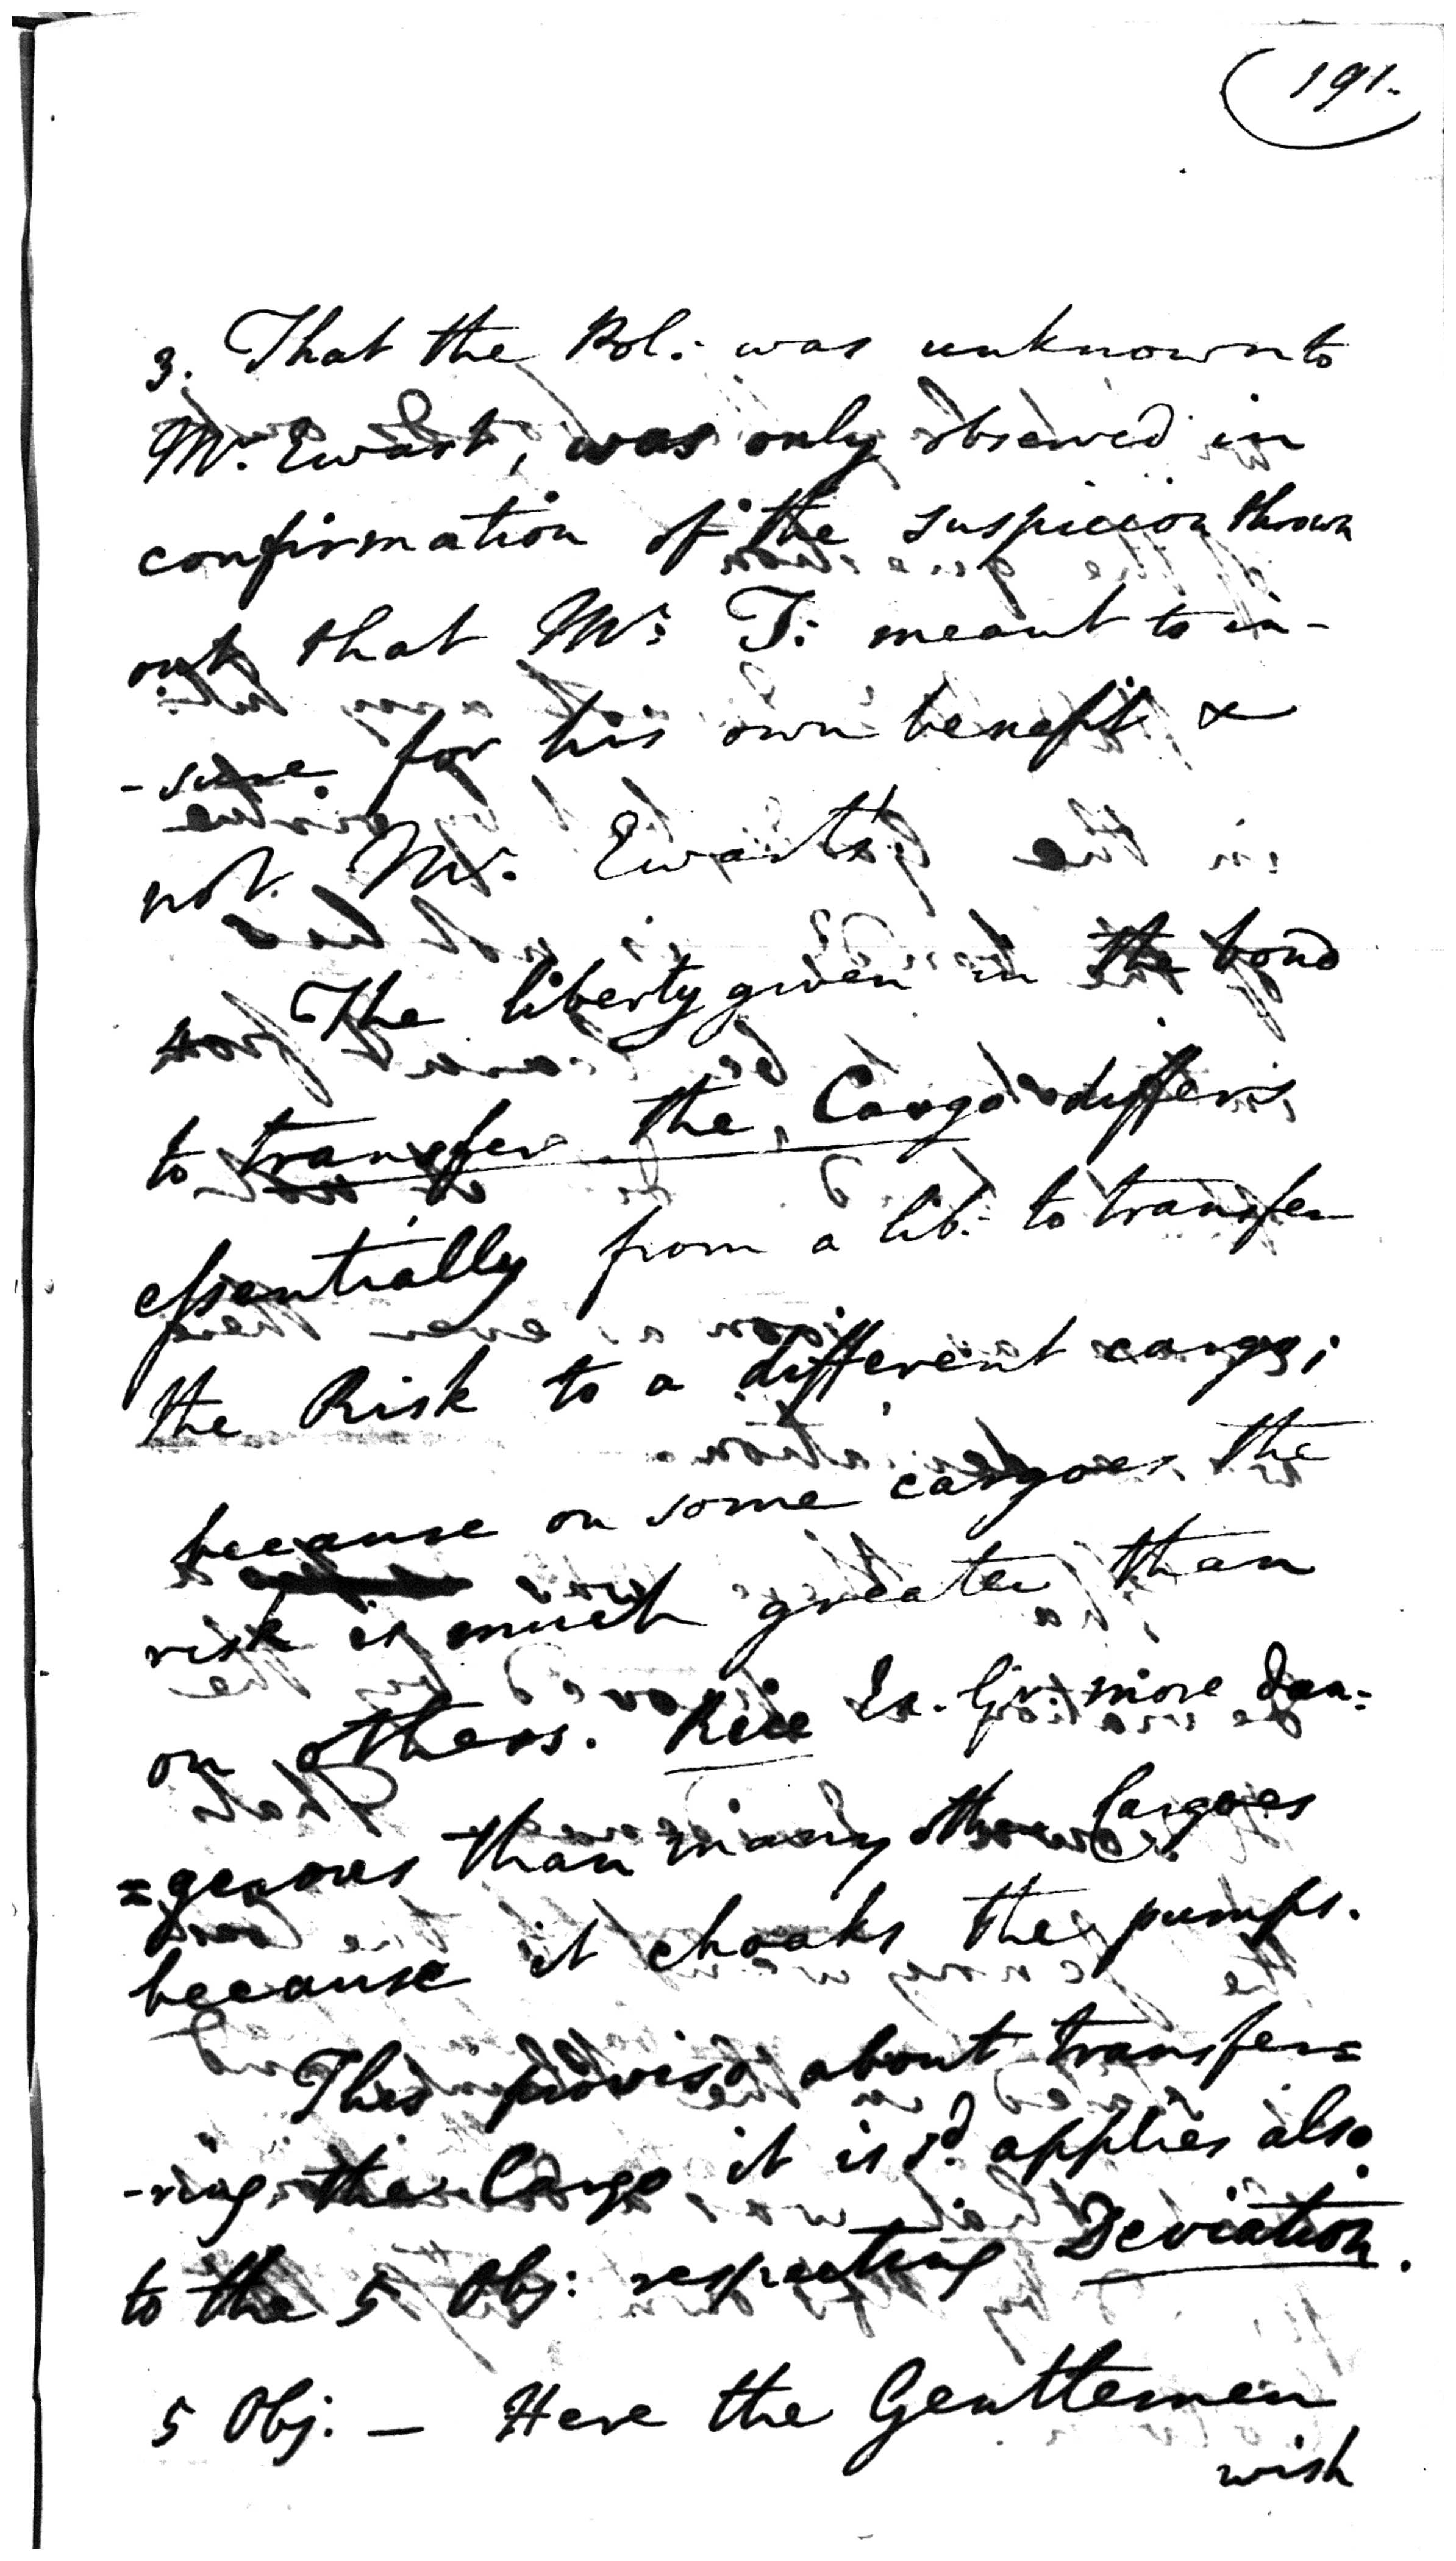 191.
3. That the Pol: was unknown to
Mr. Ewart, was only observed in
confirmation of the suspicion thrown
out that Mr: T: meant to in-
-sure for his own benefit &
not Mr. Ewart's.
The liberty given in the bond
to transfer the Cargo differs
essentially from a lib: to transfer
the Risk to a different cargo;
because on some cargoes the
risk is much greater than
on others. Rice Ex. Gr. more dan=
=gerous than many other Cargoes
because it choaks the pumps.
This proviso about transfer=
-ring the Cargo it is sd. applies also
to the 5 Obj: respecting Deviation.
5 Obj. — Here the Gentlemen
wish